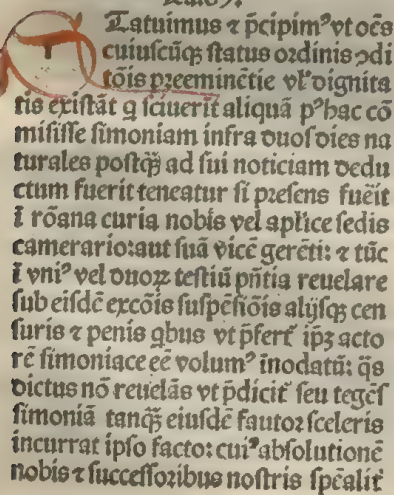 Statuimus ⁊ p̄cipimꝰ vt oēs
cuiuſcūqꝫ ſtatus ordinis ↄdi
tōis preeminētie vl̓ dignita
tis exiſtāt q ſciuerīt aliquā pꝰhac cō
miſiſſe ſimoniam infra duoſ dies na
turales poſtqꝫ̄ ad ſui noticiam dedu
ctum fuerit teneatur ſi preſens fuēit
ī rōana curia nobis vel apl̓ice ſedis
camerario: aut ſuā vicē gerēti: ⁊ tūc
ī vniꝰ vel duoꝝ teſtiū pn̄tia reuelare
ſub eiſdē excōis ſuſpēſiōis alijſqꝫ cen
ſuris ⁊ penis qbus vt p̄fert᷑ ip̄ꝫ acto
rē ſimoniace eē volumꝰ īnodatū: q̄s
dictus nō reuelās vt p̄dicit᷑ ſeu tegēſ
ſimoniā tanqꝫ̄ eiuſdē fautor ſceleris
incurrat ipſo facto: cuiꝰ abſolutionē
nobis ⁊ ſucceſſoribus noſtris ſpēalit᷑